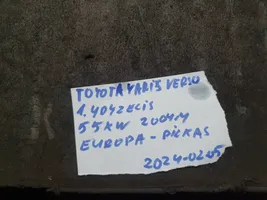 TOYOTA YARIS VERSO
1.4 DYZELIS
55KW 2004M
EUROPA - PILKAS
2024-02-05